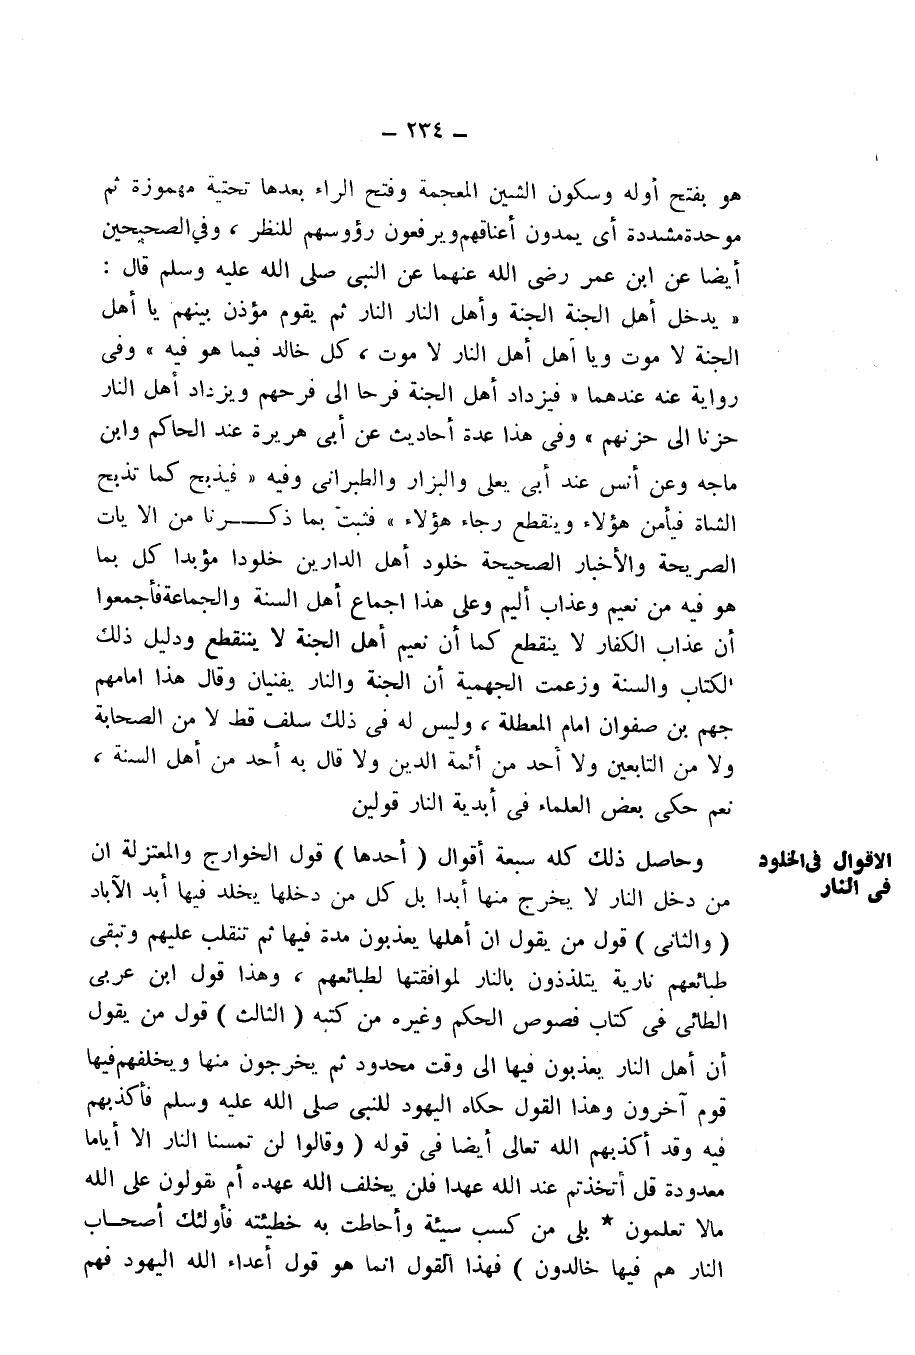 – ٢٣٤ –
هو بفتح أوله وسكون الشين المعجمة وفتح الراء بعدها تحتية مهموزة ثم
موحدة مشددة أى يمدون أعناقهم ويرفعون رؤوسهم للنظر ، وفي الصحيحين
أيضا عن ابن عمر رضى الله عنهما عن النبى صلى الله عليه وسلم قال :
« يدخل أهل الجنة الجنة وأهل النار النار ثم يقوم مؤذن بينهم يا أهل
الجنة لا موت ويا أهل أهل النار لا موت ، كل خالد فيما هو فيه » وفى
رواية عنه عندهما « فيزداد أهل الجنة فرحا الى فرحهم ويزداد أهل النار
حزنا الى حزنهم » وفى هذا عدة أحاديث عن أبى هريرة عند الحاكم وابن
ماجه وعن أنس عند أبى يعلى والبزار والطبرانى وفيه « فيذبح كما تذبح
الشاة فيأمن هؤلاء وينقطع رجاء هؤلاء » فثبت بما ذكـــرنا من الآيات
الصريحة والأخبار الصحيحة خلود أهل الدارين خلودا مؤبدا كل بما
هو فيه من نعيم وعذاب أليم وعلى هذا اجماع أهل السنة والجماعة فأجمعوا
أن عذاب الكفار لا ينقطع كما أن نعيم أهل الجنة لا ينقطع ودليل ذلك
الكتاب والسنة وزعمت الجهمية أن الجنة والنار يفنيان وقال هذا امامهم
جهم بن صفوان امام المعطلة ، وليس له فى ذلك سلف قط لا من الصحابة
ولا من التابعين ولا أحد من أئمة الدين ولا قال به أحد من أهل السنة ،
نعم حكى بعض العلماء فى أبدية النار قولين
الاقوال فى الخلود
فى النار
وحاصل ذلك كله سبعة أقوال ( أحدها ) قول الخوارج والمعتزلة ان
من دخل النار لا يخرج منها أبدا بل كل من دخلها يخلد فيها أبد الآباد
( والثانى ) قول من يقول ان أهلها يعذبون مدة فيها ثم تنقلب عليهم وتبقى
طبائعهم نارية يتلذذون بالنار لموافقتها لطبائعهم ، وهذا قول ابن عربى
الطائى فى كتاب فصوص الحكم وغيره من كتبه ( الثالث ) قول من يقول
أن أهل النار يعذبون فيها الى وقت محدود ثم يخرجون منها ويخلفهم فيها
قوم آخرون وهذا القول حكاه اليهود للنبى صلى الله عليه وسلم فأكذبهم
فيه وقد أكذبهم الله تعالى أيضا فى قوله ( وقالوا لن تمسنا النار الا أياما
معدودة قل أتخذتم عند الله عهدا فلن يخلف الله عهده أم تقولون على الله
مالا تعلمون * بلى من كسب سيئة وأحاطت به خطيئته فأولئك أصحـاب
النار هم فيها خالدون ) فهذا القول انما هو قول أعداء الله اليهود فهم